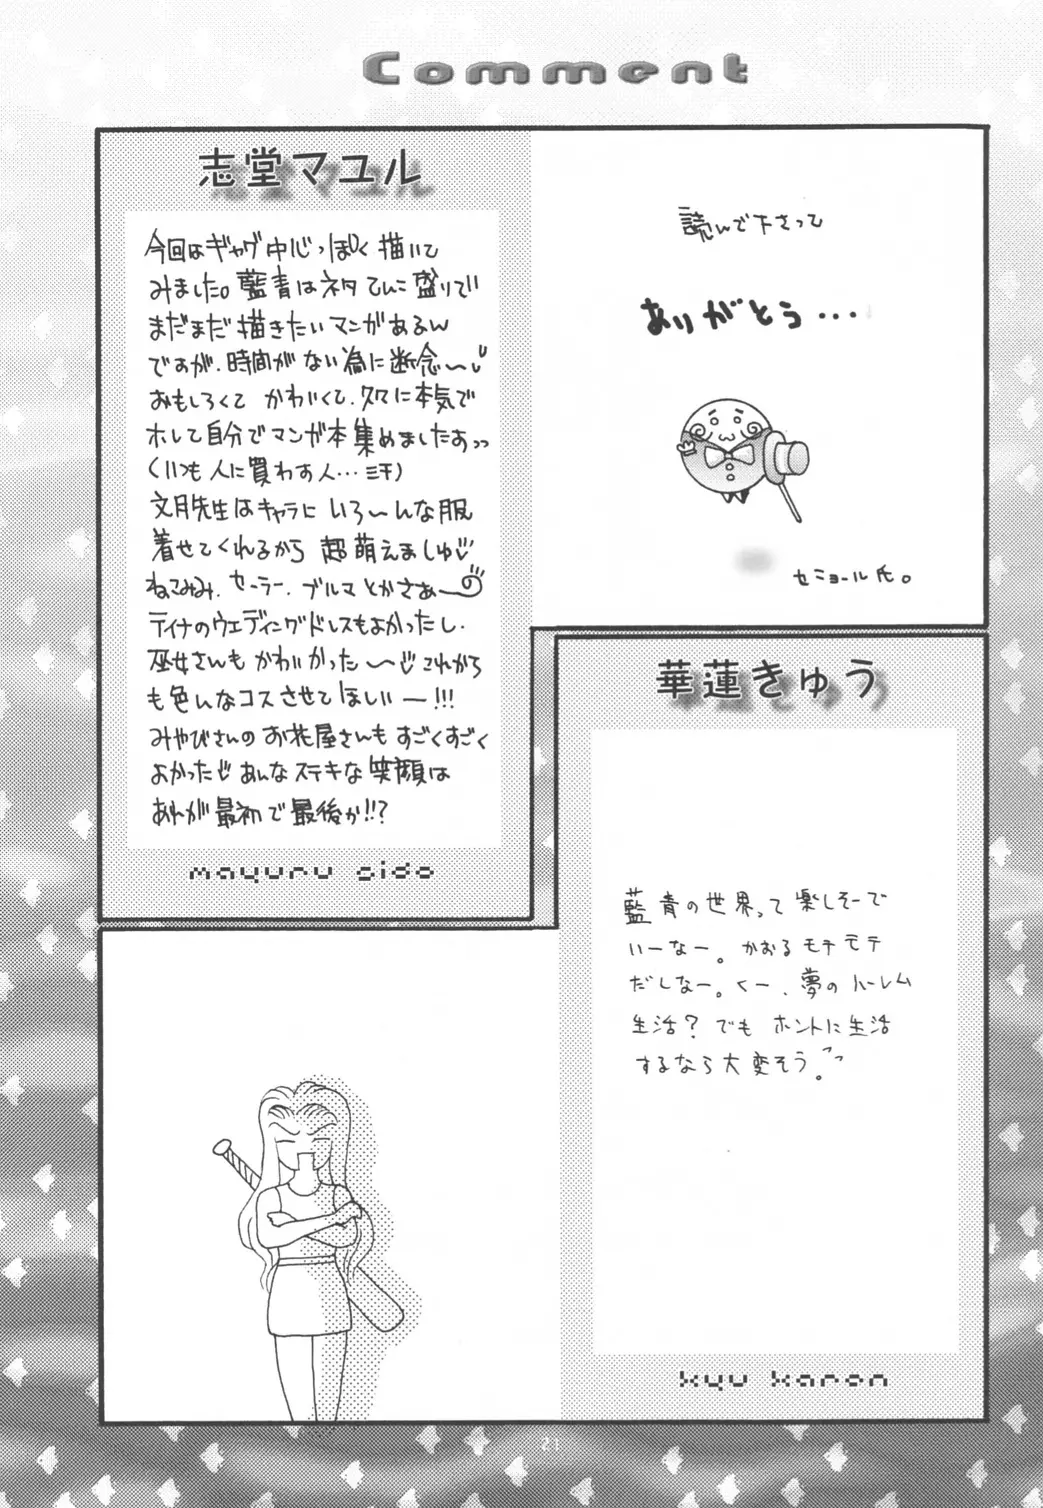 Comment
志堂マユル
今回はギャグ中心っぽく描いて
みました。藍青はネタてんこ盛りで
まだまだ描きたいマンガがあるん
ですが、時間がない為に断念〜
おもしろくて かわいくて、久々に本気で
ホレて自分でマンガ本集めましたあっっ
(いつも人に買わす人…ミ干)
文月先生はキャラに いろ〜んな服
着せてくれるから 超萌えましゅ
ねこみみ、セーラー、ブルマとかさぁ〜
ティナのウェディングドレスもよかったし、
巫女さんも かわいかった〜 これから
も色んなコスさせてほしいー!!!
みやびさんの お花屋さんも すごくすごく
よかった あんなステキな笑顔は
あれが最初で最後か!!?
mayuru sido
読んで下さって
ありがとう...
セニョール氏。
華蓮きゅう
藍青の世界って楽しそーで
いーなー。かおるモテモテ
だしなー。くー、夢のハーレム
生活? でも ホントに生活
するなら大変そう。
kyu karen
21